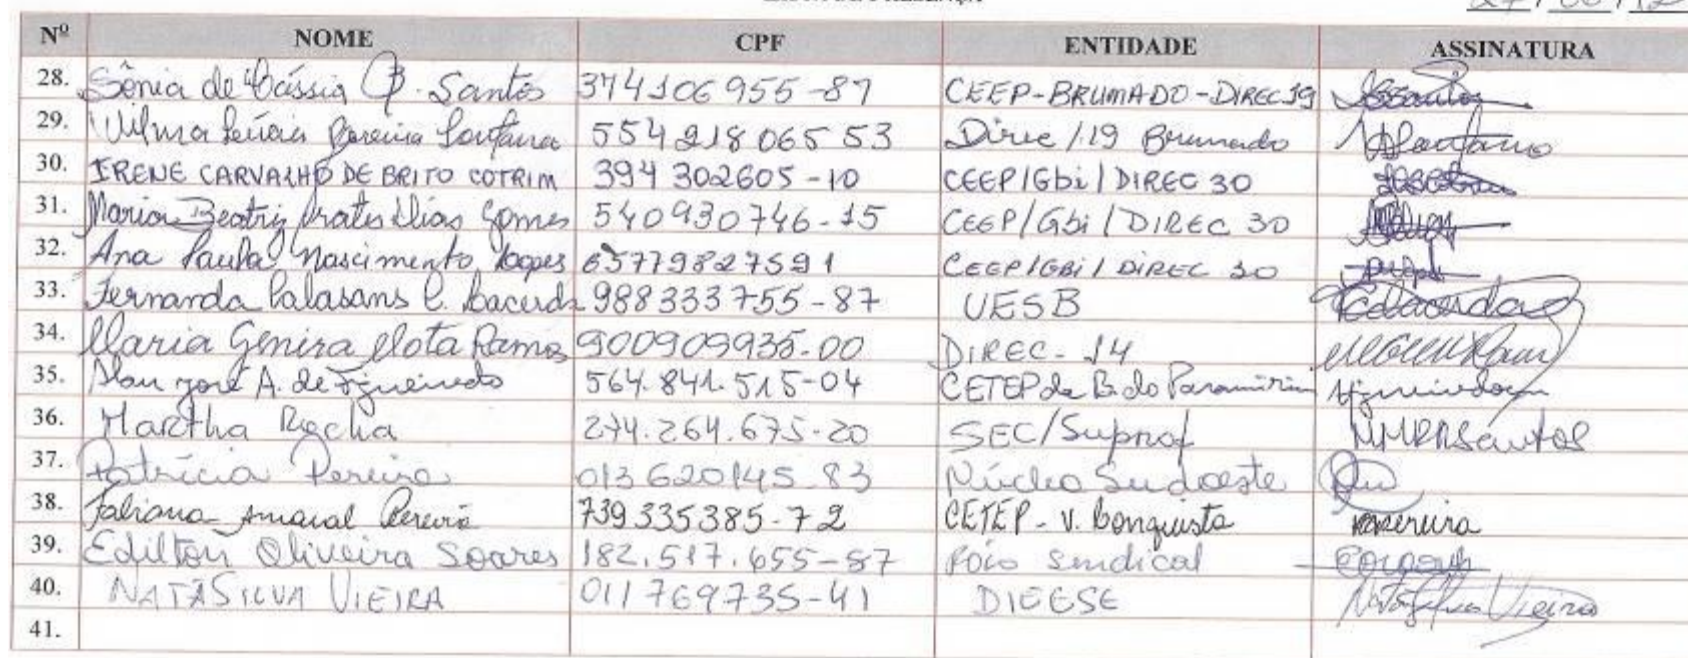 Nº NOME CPF ENTIDADE ASSINATURA
28. Sônia de Cássia P. Santos 374106955-87 CEEP-BRUMADO-DIREC 19
29. Wilma Pereira Santana 554218065 53 Direc/19 Brumado
30. IRENE CARVALHO DE BRITO COTRIM 394 302605-10 CEEP/Gbi/DIREC 30
31. Maria Beatriz Prates Dias Gomes 540930746-15 CEEP/Gbi/DIREC 30
32. Ana Paula Nascimento Lopes 65779827591 CEEP/GBi/DIREC 30
33. Fernanda Calasans C. Lacerda 988333755-87 UESB
34. Maria Genira Mota Ramos 900909935-00 DIREC-14
35. Alan José A. de Figueiredo 564.841.515-04 CETEP da B. do Paramirim
36. Martha Rocha 274.264.675-20 SEC/Suprof MMRSantos
37. Patrícia Pereira 013620145-83 Núcleo Sudoeste
38. Fabiana Amaral Pereira 739335385-72 CETEP-V. Conquista
39. Edilton Oliveira Soares 182.517.655-87 Sindical
40. NATA SILVA VIEIRA 011769735-41 DIEESE Natã Silva Vieira
41.